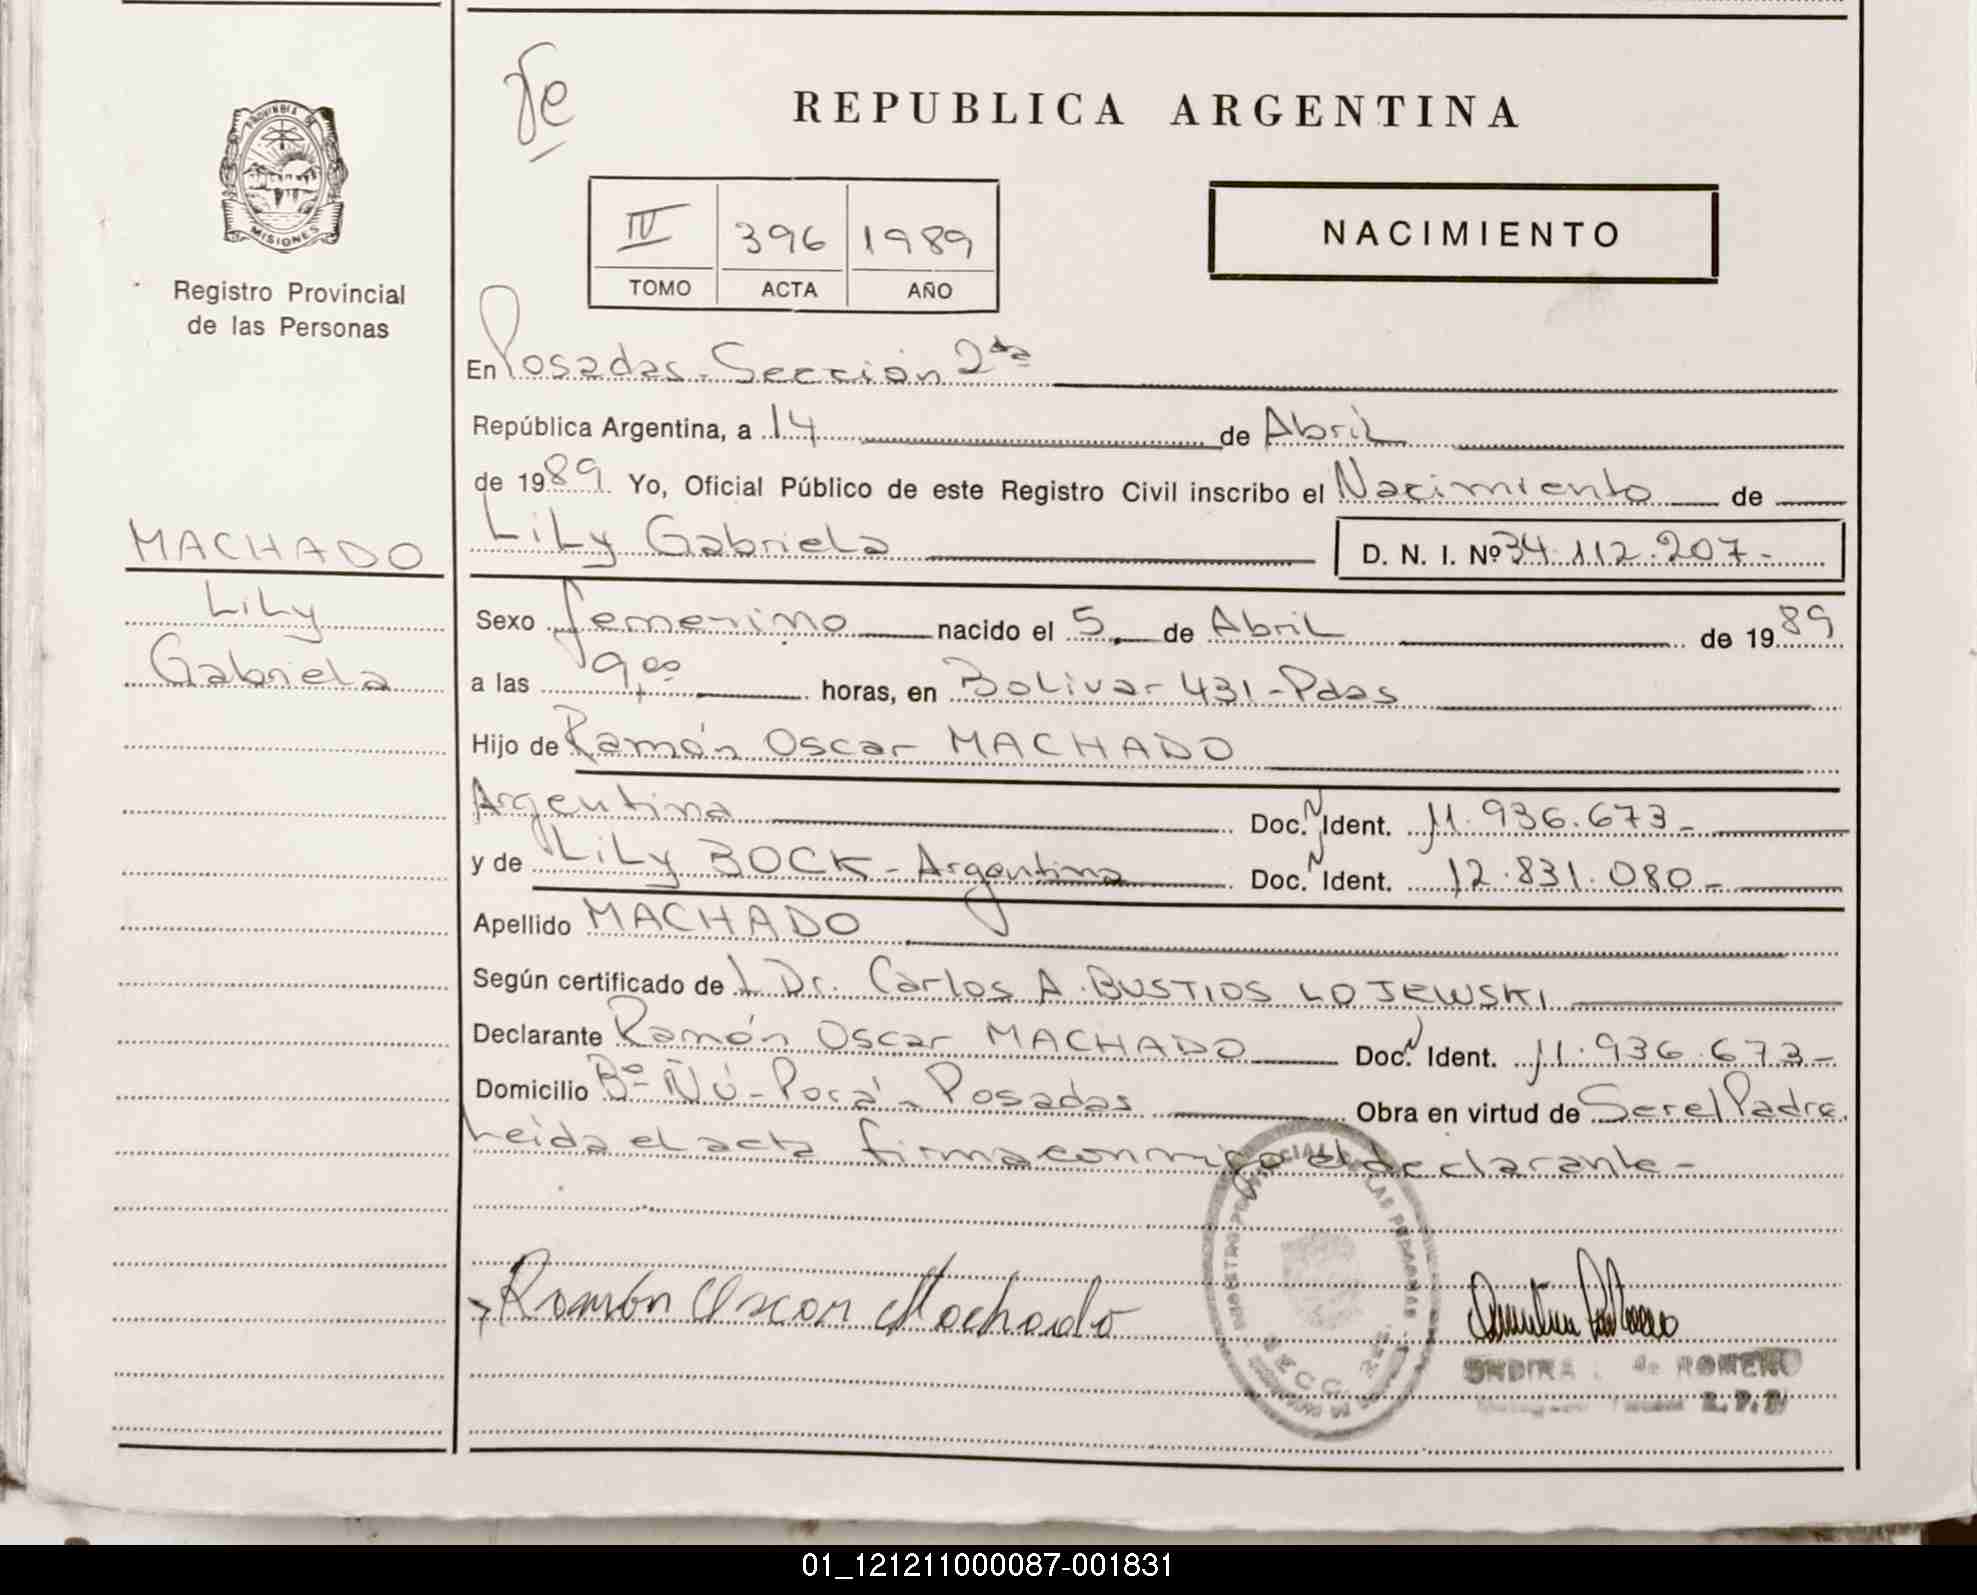 Je
REPUBLICA ARGENTINA
PROVINCIA DE
MISIONES
Registro Provincial
de las Personas
IV 396 1989
TOMO ACTA AÑO
NACIMIENTO
En Posadas-Sección 2da
República Argentina, a 14 de Abril
de 1989. Yo, Oficial Público de este Registro Civil inscribo el Nacimiento de
MACHADO
Lily
Gabriela
Lily Gabriela D. N. I. Nº 34.112.207-
Sexo femenino nacido el 5 de Abril de 1989
a las 9,00 horas, en Bolivar 431-Pdas
Hijo de Ramón Oscar MACHADO
Argentina Doc. Ident. M. 11.936.673-
y de Lily BOCK-Argentina Doc. Ident. 12.831.080-
Apellido MACHADO
Según certificado de L Dr. Carlos A. BUSTIOS LOJEWSKI
Declarante Ramón Oscar MACHADO Doc. Ident. 11.936.673-
Domicilio Bº Ñú-Porá-Posadas Obra en virtud de Ser el Padre.
Leida el acta firma conmigo el declarante-
Ramón Oscar Machado
de ROMERO
01_121211000087-001831